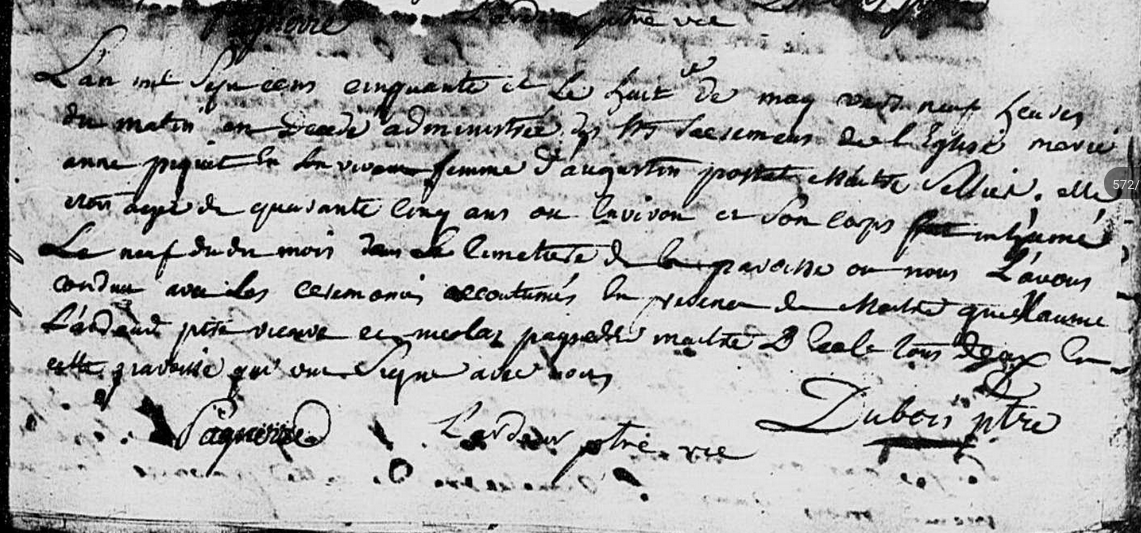 Lardeur ptre vce
L'an mil sept cens cinquante et le huit de may vers neuf heures
du matin en decedé administrée des sts sacremens de l'Eglise marie
anne piquet en son vivant femme d'augustin postel Maitre Sellier. elle
etoit agee de quarante cinq ans ou Environ et son corps fut inhumé
Le neuf du du mois dans le Cimetiere de la paroisse ou nous L'avons
conduit avec les ceremonies accoutumés En presence de Maitre guillaume
Lardeur ptre vicaire et nicolas paquerre maitre D Ecole tous deux En
cette paroisse qui ont Signe avec nous
Paquerre Lardeur ptre vce Dubois ptre
572/